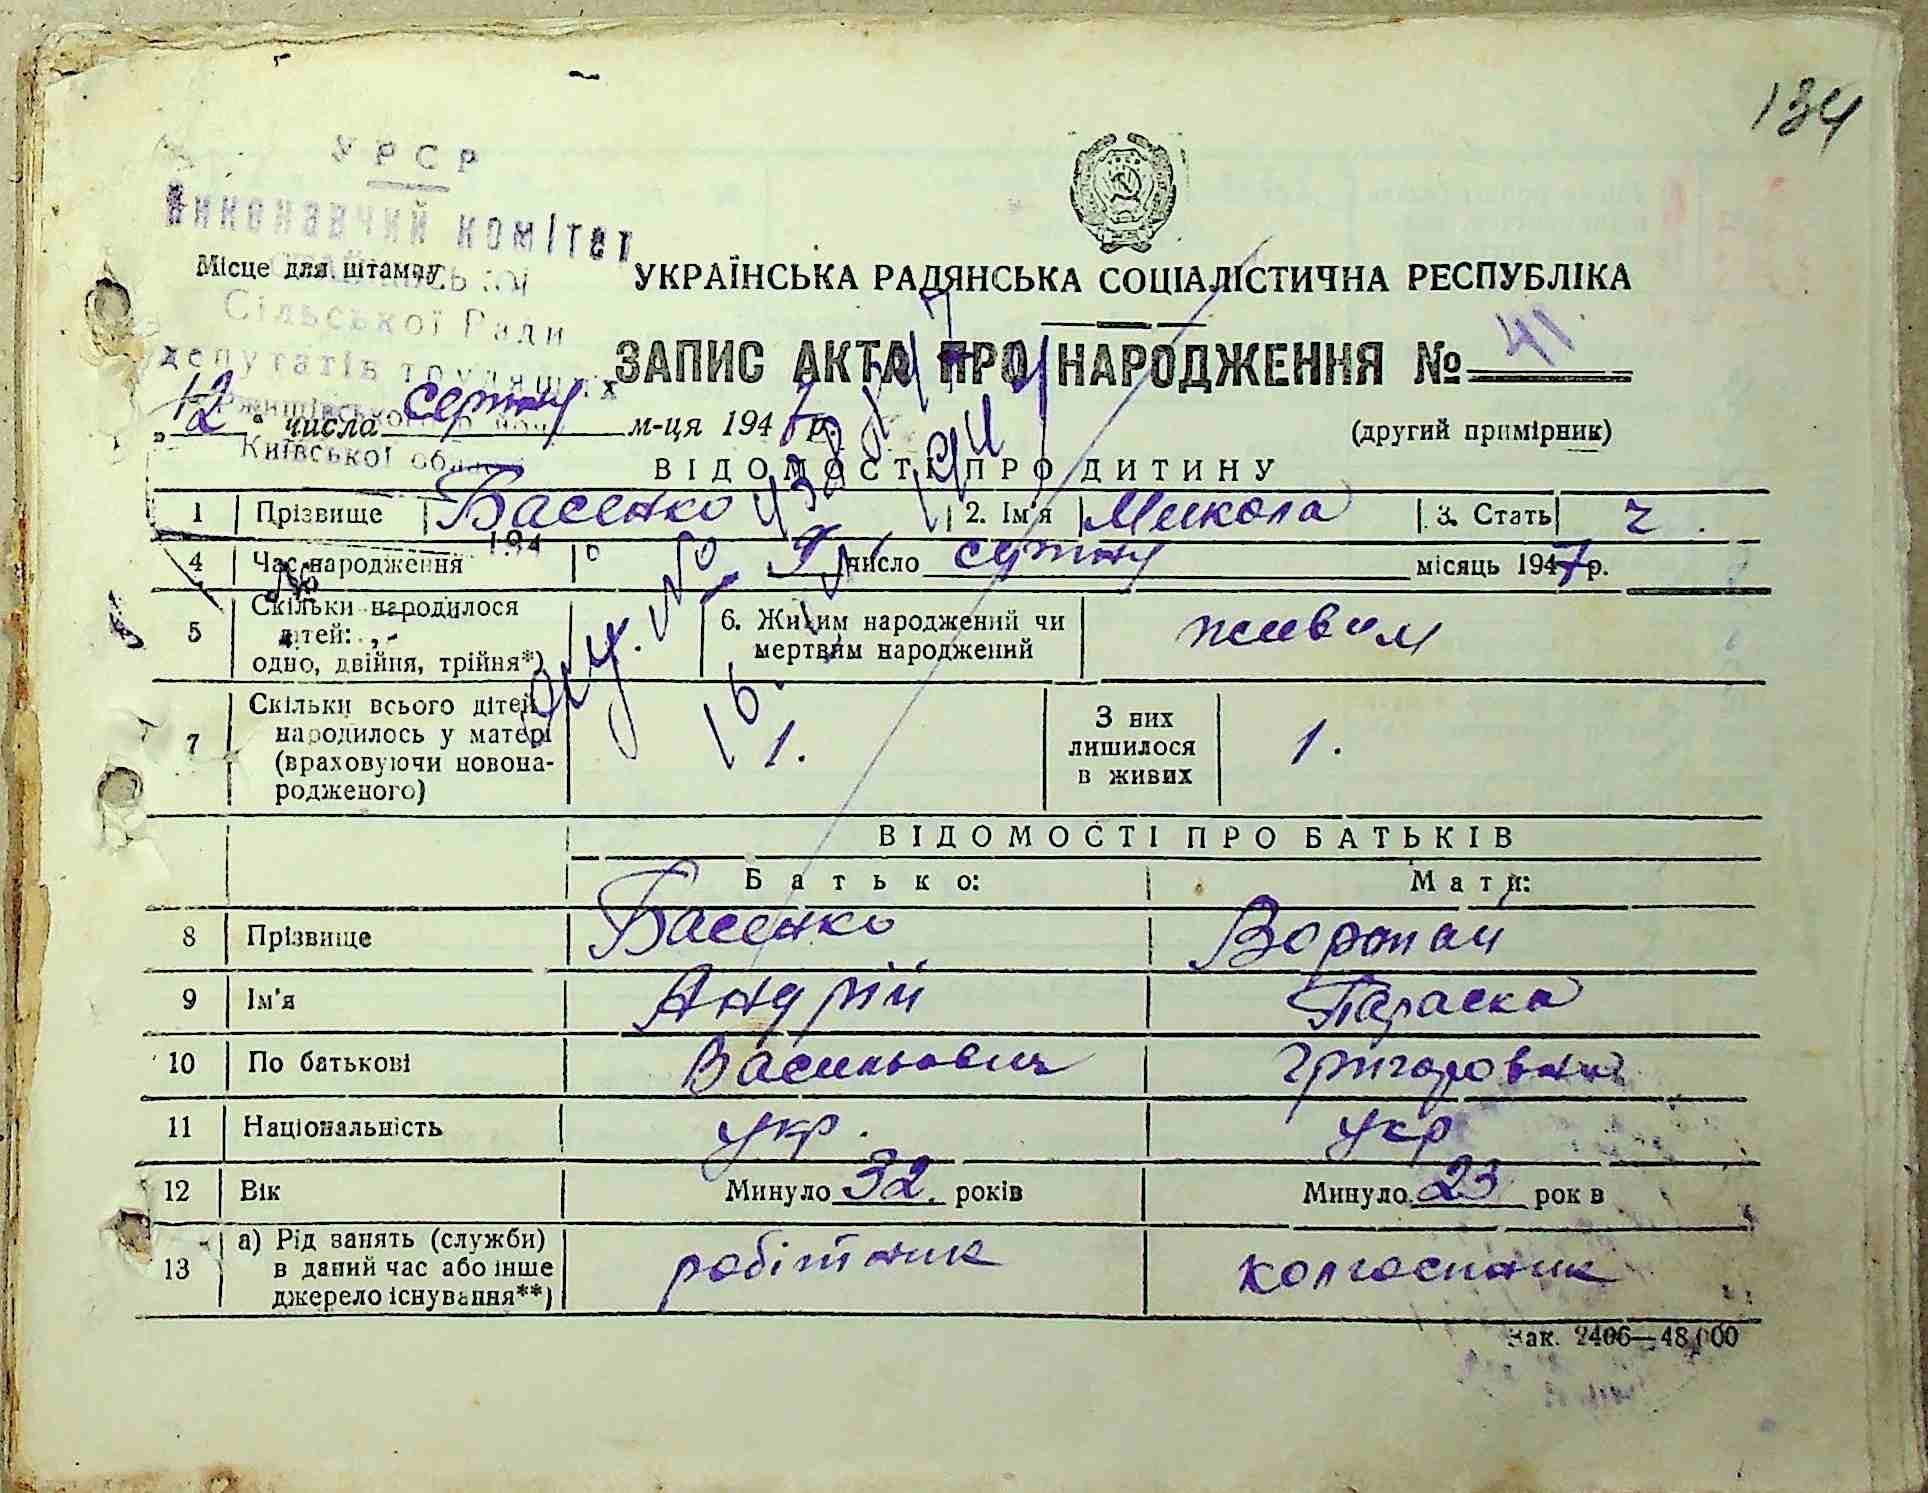 134
УРСР
Виконавчий комітет
Місце для штампу
Сільської Ради
депутатів трудящих
Ржищівського
Київської області
УКРАЇНСЬКА РАДЯНСЬКА СОЦІАЛІСТИЧНА РЕСПУБЛІКА
ЗАПИС АКТА ПРО НАРОДЖЕННЯ № 41
„12“ числа серпня м-ця 1947 р.
(другий примірник)
ВІДОМОСТІ ПРО ДИТИНУ
1 Прізвище Басенко 2. Ім'я Микола 3. Стать ч.
4 Час народження число серпня місяць 1947 р.
5 Скільки народилося дітей: одно, двійня, трійня*) 6. Живим народжений чи мертвим народжений живим
7 Скільки всього дітей народилось у матері (враховуючи новонародженого) 1. З них лишилося в живих 1.
ВІДОМОСТІ ПРО БАТЬКІВ
Батько: Мати:
8 Прізвище Басенко Воропай
9 Ім'я Андрій Параска
10 По батькові Васильович Григоровна
11 Національність укр. укр
12 Вік Минуло 32 років Минуло 23 років
13 а) Рід занять (служби) в даний час або інше джерело існування**) робітник колгоспник
Зак. 2406—48.000